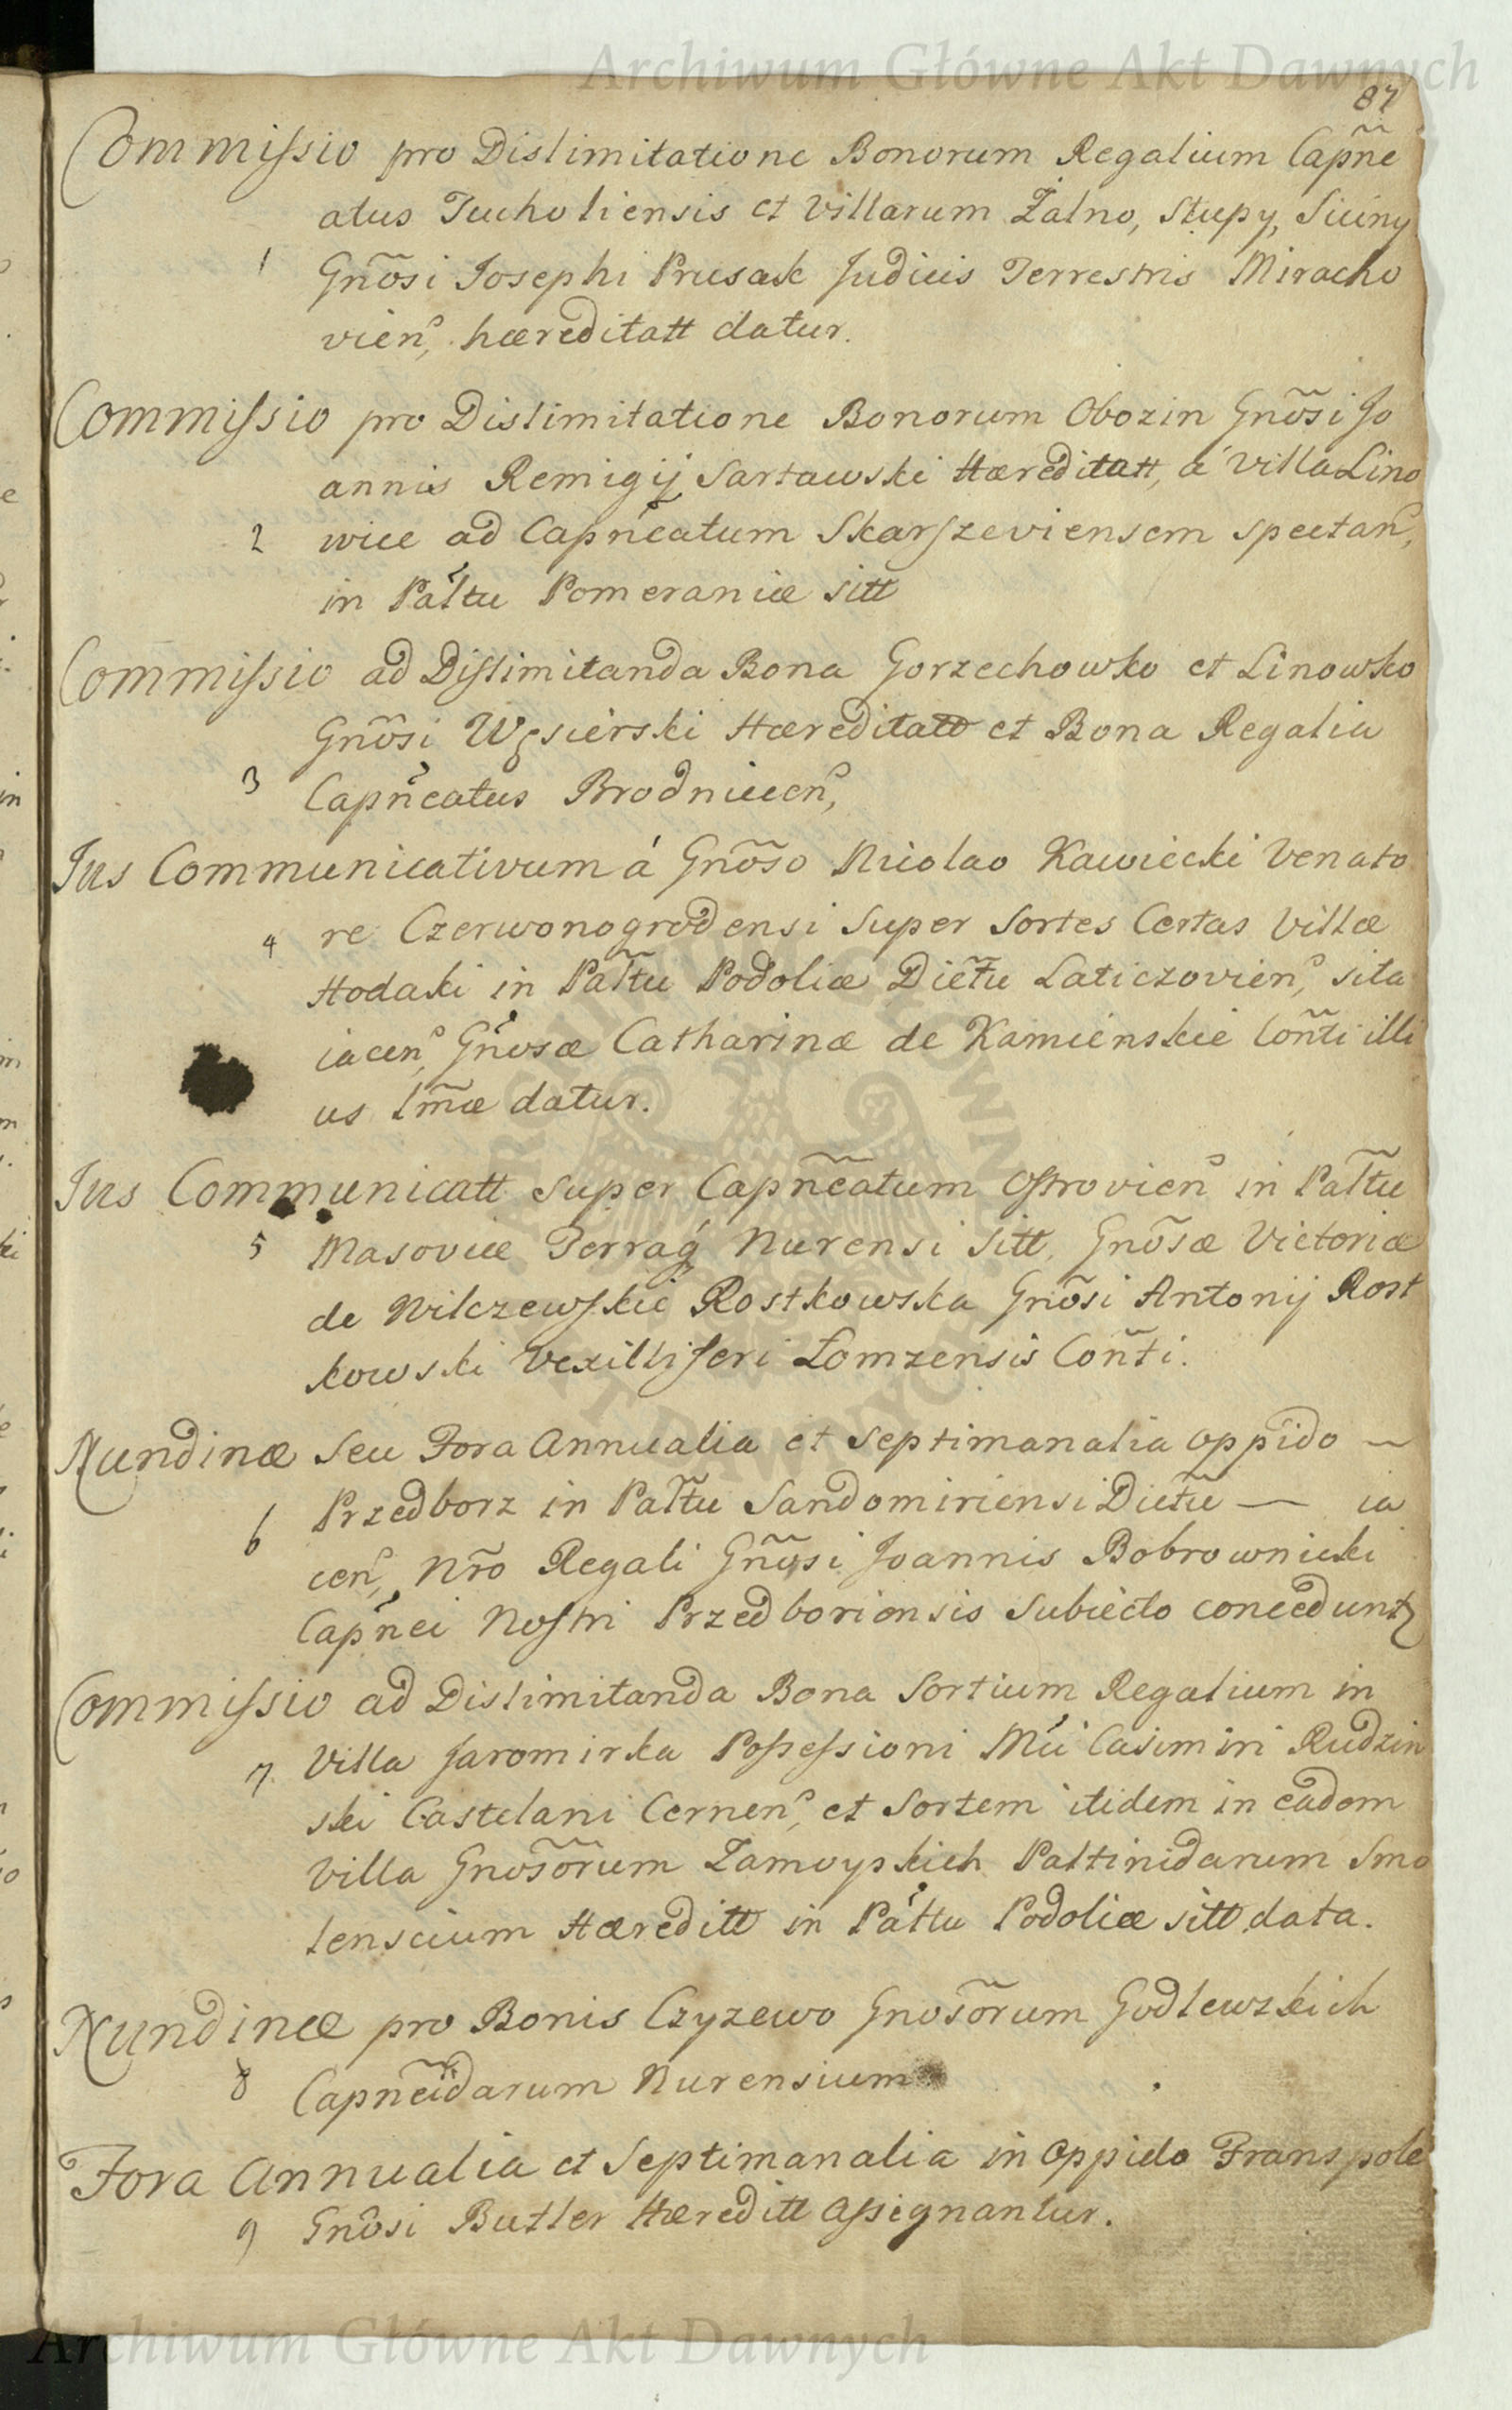 Archiwum Główne Akt Dawnych
87
Commissio pro Dislimitatione Bonorum Regalium Capñe
atus Tucholiensis et Villarum Żalno, Stupy, Siciny
1 Gnõsi Josephi Prusak Judicis Terrestris Miracho
vien, hæreditatt datur.
Commissio pro Dislimitatione Bonorum Obozin Gnõsi Jo
annis Remigij Sartawski Hæreditatt, á Villa Lino
2 wice ad Capñeatum Skarszeviensem spectan,
in Palttu Pomeraniæ sitt
Commissio ad Disslimitanda Bona Gorzechowko et Linowko
Gnõsi Węsierski Hæreditatt et Bona Regalia
3 Capñeatus Brodnicen,
Jus Communicativum á Gnõso Nicolao Kawiecki Venato
4 re Czerwonogrodensi super Sortes Certas Villæ
Hodaki in Palttu Podoliæ Dictu Laticzovien, sita
iacen, Gñosæ Catharinæ de Kamienskie Coñti illi
us lmæ datur.
Jus Communicatt super Capñeatum Ostrovien in Palttu
5 Masoviæ Terraq́ Nurensi sitt, Gnõsæ Victoriæ
de Wilczewskie Rostkowska Gnõsi Antonij Rost
kowski Vexilliferi Łomzensis Coñti.
Nundinæ seu Fora Annualia et Septimanalia oppido —
6 Przedborz in Palttu Sandomiriensi Dictu — ia
cen, Nrõ Regali Gnõsi Joannis Bobrownicki
Capñei Nostri Przedboriensis Subiecto conceduntz
Commissio ad Dislimitanda Bona Sortium Regalium in
7 Villa Jaromirka Possessioni Mci Casimiri Rudzin
ski Castelani Cernen, et Sortem itidem in eadem
Villa Gnosõrum Zamoyskich Palttinidarum Smo
lenscium Hæreditt in Palttu Podoliæ sitt data.
Nundinæ pro Bonis Czyzewo Gnosõrum Godlewskich
8 Capñeidarum Nurensium
Fora Annualia et Septimanalia in Oppido Franspole
9 Gnõsi Butler Hæreditt assignantur.
Archiwum Główne Akt Dawnych